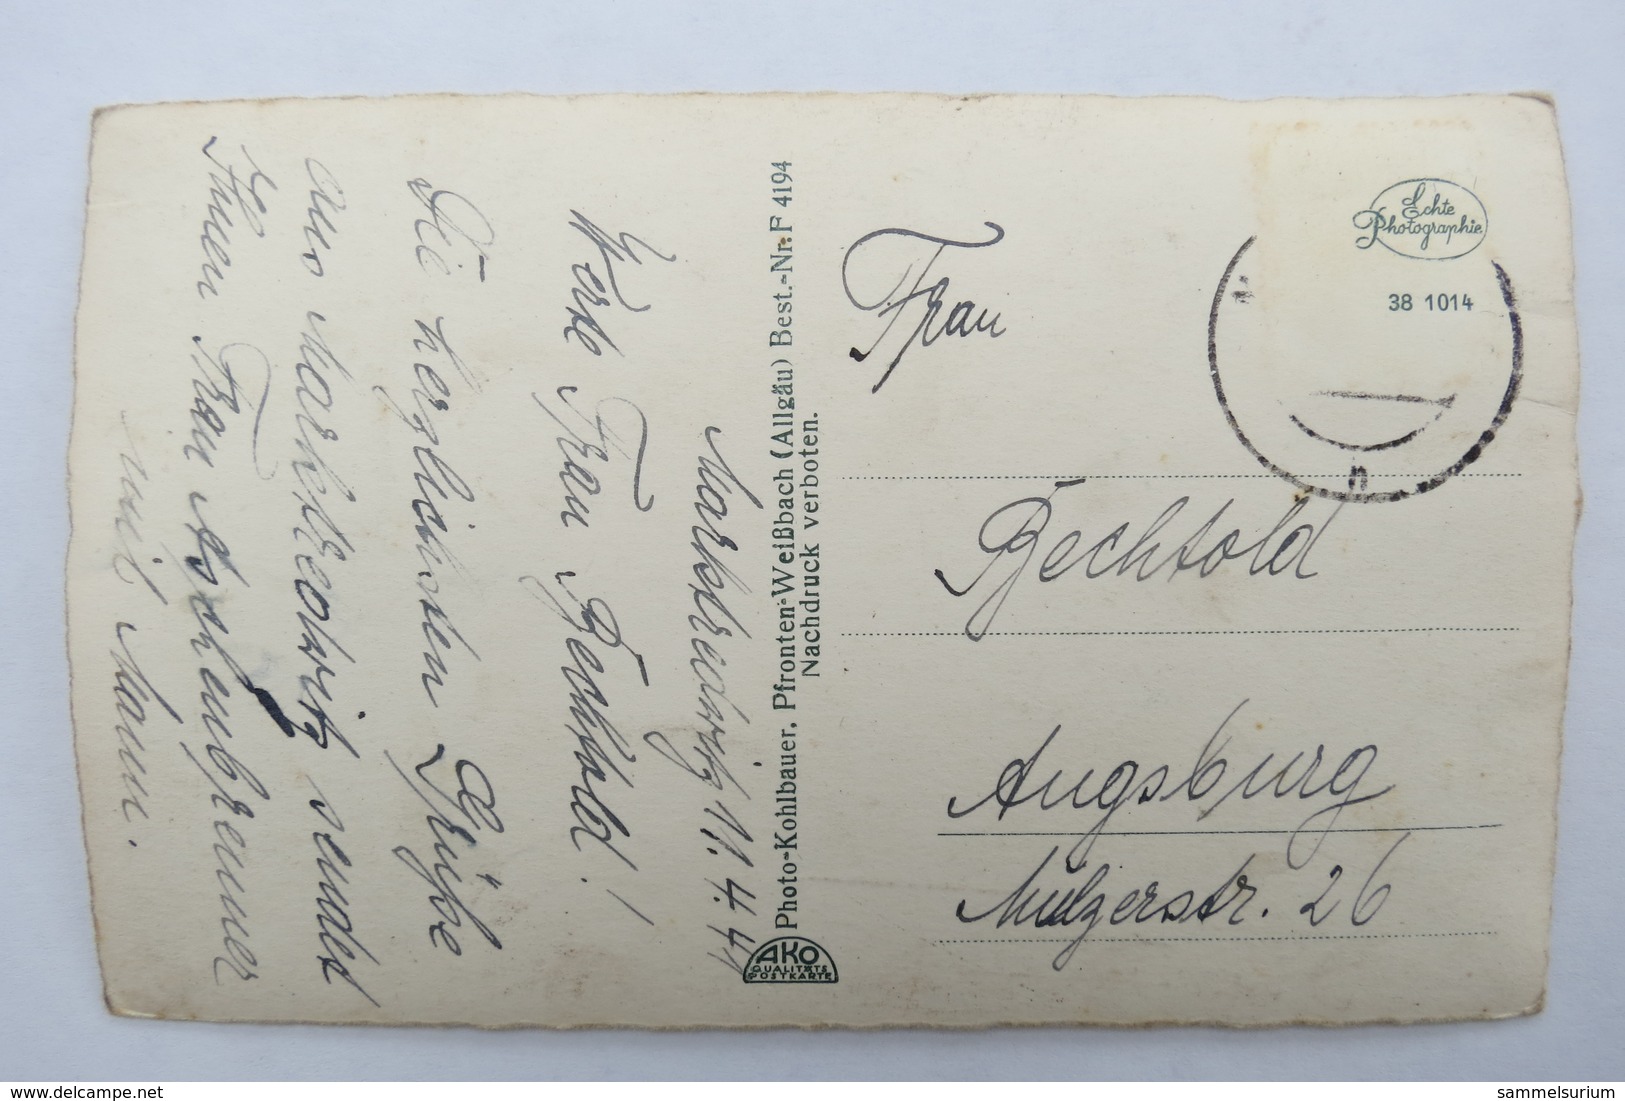 Marktredwitz 11.4.41
Werte Frau Bechtold!
Die herzlichsten Grüße
aus Marktredwitz sendet
Ihnen Frau Aschenbrenner
mit Mann.
Photo-Kohlbauer, Pfronten-Weißbach (Allgäu) Best.-Nr. F 4194
Nachdruck verboten.
AKO
QUALITÄTS
POSTKARTE
Echte
Photographie
38 1014
n
Frau
Bechtold
Augsburg
Mülzerstr. 26
delcampe.net
sammelsurium